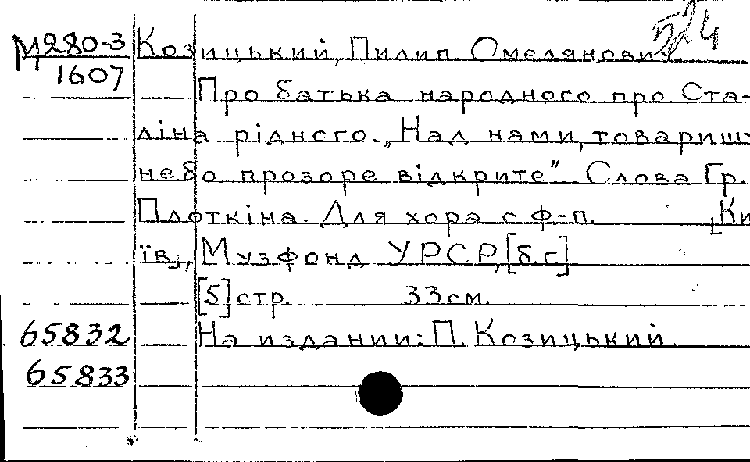 М280-3 Козицький, Пилип Омелянович 524
1607
Про батька народного про Ста-
ліна рідного. „Над нами, товариш,
небо прозоре відкрите". Слова Гр.
Плоткіна. Для хора с ф-п. [Ки
їв], Музфонд УРСР, [б.г.]
[5] стр. 33 см.
65832 На издании: П. Козицький.
65833